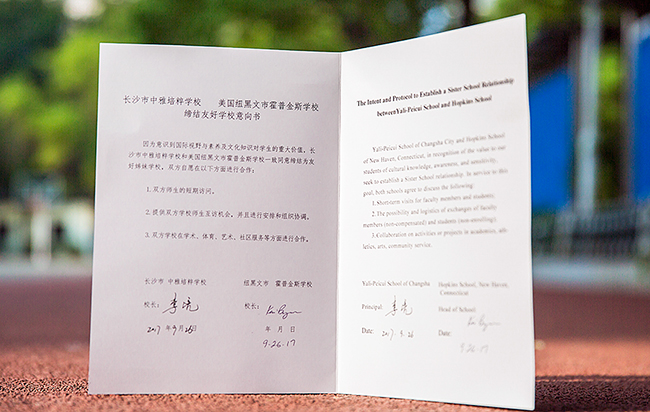 长沙市中雅培粹学校 美国纽黑文市霍普金斯学校
缔结友好学校意向书
因为意识到国际视野与素养及文化知识对学生的重大价值,长
沙市中雅培粹学校和美国纽黑文市霍普金斯学校一致同意缔结为友
好姊妹学校。双方自愿在以下方面进行合作:
1.双方师生的短期访问。
2.提供双方学校师生互访机会,并且进行安排和组织协调。
3.双方学校在学术、体育、艺术、社区服务等方面进行合作。
长沙市 中雅培粹学校 纽黑文市 霍普金斯学校
校长: 李亮 校长:
2017 年 9 月 26 日 年 月 日
9.26.17
The Intent and Protocol to Establish a Sister School Relationship
between Yali-Peicui School and Hopkins School
Yali-Peicui School of Changsha City and Hopkins School
of New Haven, Connecticut, in recognition of the value to our
students of cultural knowledge, awareness, and sensitivity,
seek to establish a Sister School relationship. In service to this
goal, both schools agree to discuss the following:
1.Short-term visits for faculty members and students;
2.The possibility and logistics of exchanges of faculty
members (non-compensated) and students (non-enrolling);
3.Collaboration on activities or projects in academics, ath-
letics, arts, community service.
Yali-Peicui School of Changsha Hopkins School, New Haven,
Connecticut
Principal: 李亮 Head of School:
Date: 2017.9.26 Date:
9.26.17